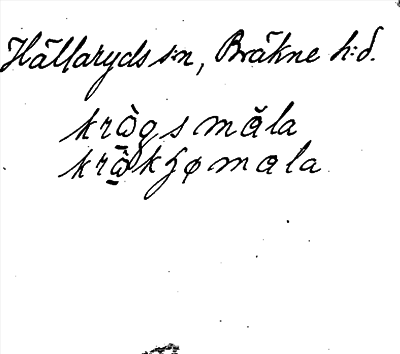 Hällaryds s:n, Bräkne h:d.
kràgsmåla
kràkhømala